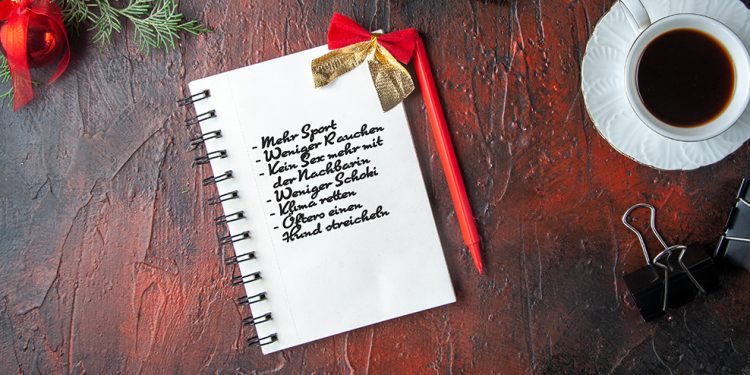 - Mehr Sport
- Weniger Rauchen
- Kein Sex mehr mit
der Nachbarin
- Weniger Schoki
- Klima retten
- Öfters einen
Hund streicheln